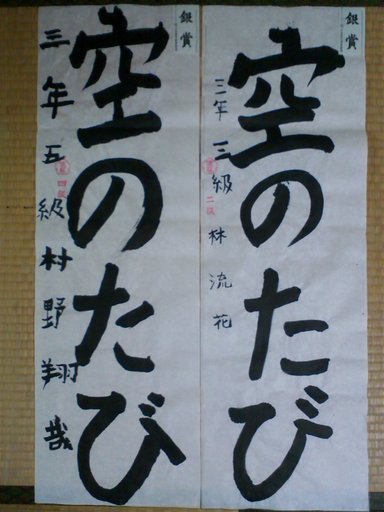 銀賞
空のたび
三年三級林流花
二段
銀賞
空のたび
三年五級村野翔哉
四段